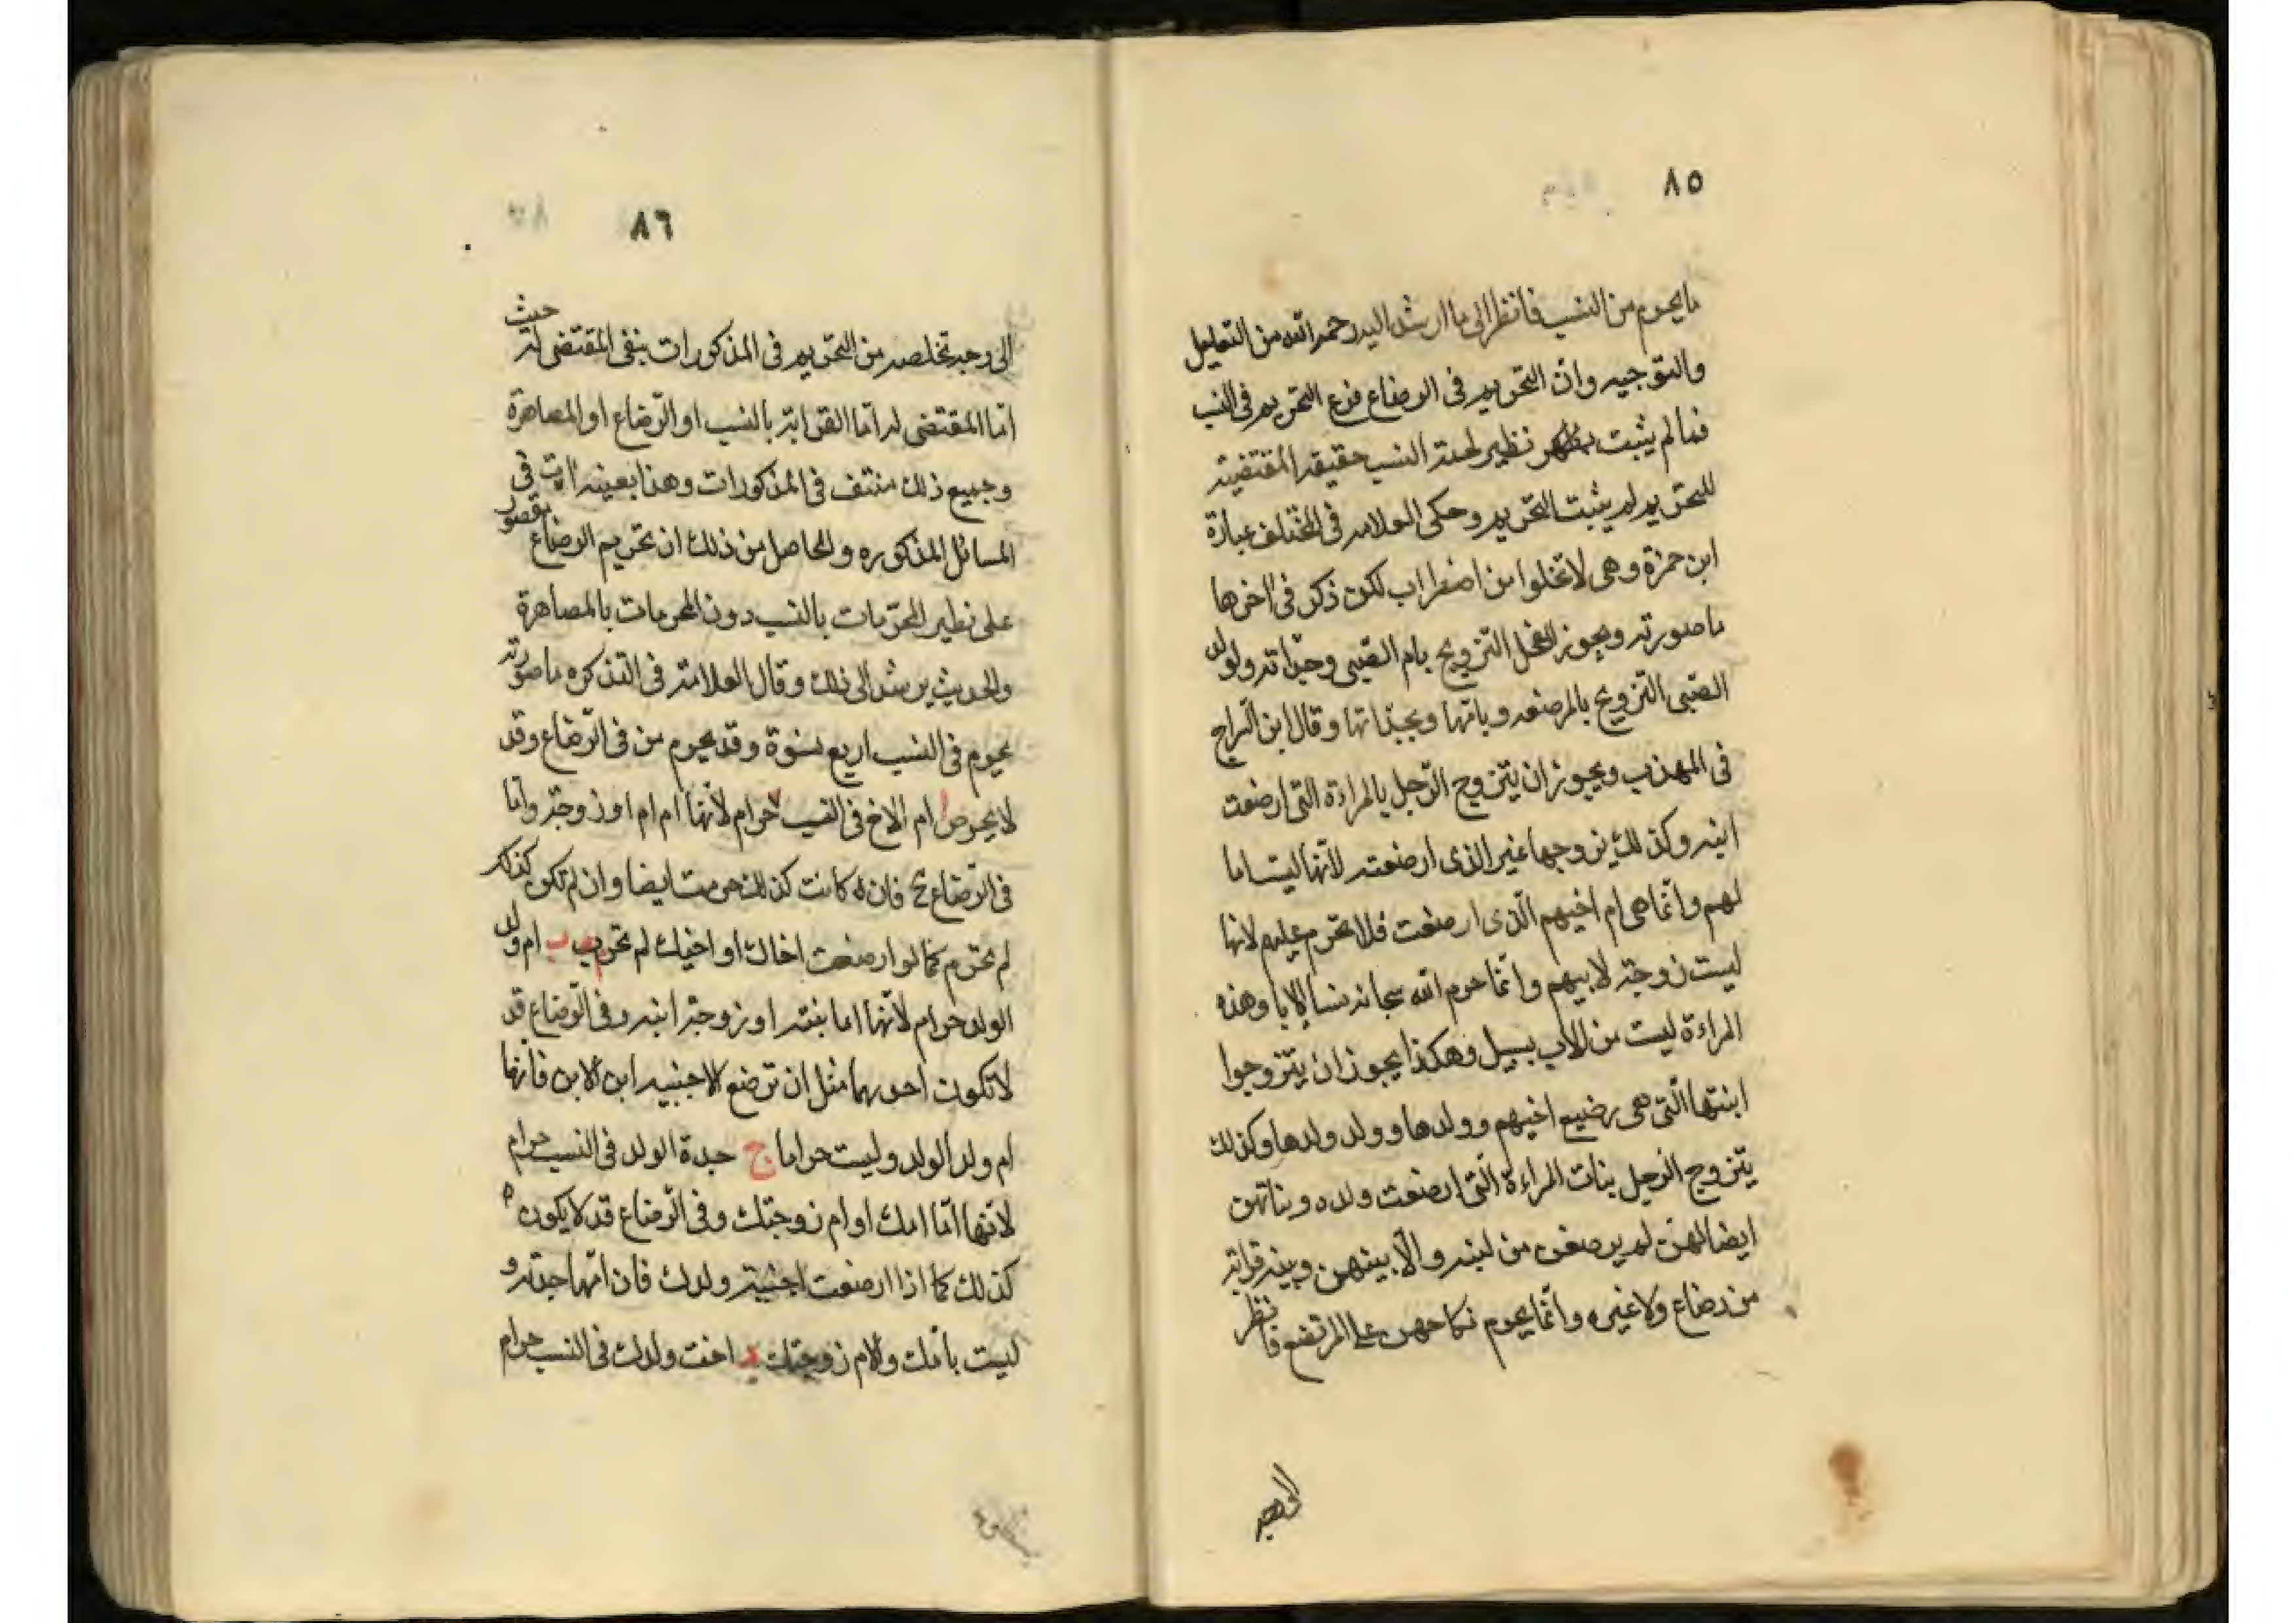 ٨٥
ما يحرم من النسب فانظر الى ما ارشد اليه رحمه الله من التعليل
والتوجيه وان التحريم فى الرضاع فرع التحريم فى النسب
فما لم يثبت نظير لهذه النسب حقيقه المقتضيه
للتحريم لم يثبت التحريم وحكى العلامه فى المختلف عبارة
ابن حمزة وهى لا تخلوا من اضطراب لكن ذكر فى اخرها
ما صورته ويجوز للفحل التزويج بام الصبى وجداته ولوالد
الصبى التزويج بالمرضعه وبامها وبجداتها وقال ابن البراج
فى المهذب ويجوز ان يتزوج الرجل بالمراءة التى ارضعت
ابنه وكذلك يزوجها غير الذى ارضعته لانها ليست اما
لهم وانما هى ام اخيهم الذى ارضعت فلا تحرم عليهم لانها
ليست زوجة لابيهم وانما حرم الله سبحانه نسا الابا وهذه
المراءة ليست من الاب بسبيل وهكذا يجوز ان يتزوجوا
ابنتها التى هى رضيع اخيهم وولدها وولد ولدها وكذلك
يتزوج الرجل بنات المراءة التى ارضعت ولده وبناتهن
ايضا لانهن لم يرضعن من لبنه ولا بينهن وبينه قرابة
من رضاع ولا غيره وانما يحرم نكاحهن على المرتضع فانظر
٨٦
الى وجه تخلصه من التحريم فى المذكورات بنفى المقتضى له حيث
اما المقتضى له اما القرابة بالنسب او الرضاع او المصاهرة
وجميع ذلك منتف فى المذكورات وهذا بعينه ات فى
المسائل المذكوره والحاصل من ذلك ان تحريم الرضاع مقصور
على نظير المحرمات بالنسب دون المحرمات بالمصاهرة
والحديث يرشد الى ذلك وقال العلامة فى التذكره ما صورته
يحرم فى النسب اربع نسوة وقد يحرم من فى الرضاع وقد
لا يحرمن ا ام الاخ فى النسب حرام لانها ام او زوجة واما
فى الرضاع فان كانت كذلك حرمت ايضا وان لم تكن كذلك
لم تحرم كما لو ارضعت اخاك او اختك لم تحرم ب ام ولد
الولد حرام لانها اما بنته او زوجة ابنه وفى الرضاع قد
لا تكون احديهما مثل ان ترضع الاجنبيه ابن الابن فانها
ام ولد الولد وليست حراما ج جدة الولد فى النسب حرام
لانها اما امك او ام زوجتك وفى الرضاع قد لا يكون
كذلك كما اذا ارضعت اجنبية ولدك فان امها جدته و
ليست بامك ولا ام زوجتك د اخت ولدك فى النسب حرام